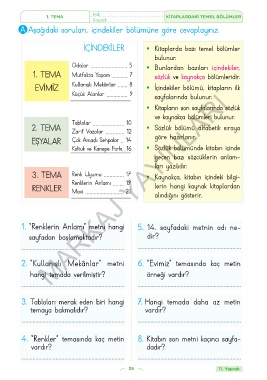 1. TEMA
KİTAPLARDAKİ TEMEL BÖLÜMLER
A Aşağıdaki soruları, içindekiler bölümüne göre cevaplayınız.
İÇİNDEKİLER
1. TEMA
EVİMİZ
Odalar 5
Mutfakta Yaşam 7
Kullanışlı Mekânlar 8
Küçük Alanlar 9
2. TEMA
EŞYALAR
Tablolar 10
Zarif Vazolar 12
Çok Amaçlı Sehpalar 14
Koltuk ve Kanepe Farkı 16
3. TEMA
RENKLER
Renk Uyumu 17
Renklerin Anlamı 19
Mavi 21
• Kitaplarda bazı temel bölümler
bulunur.
• Bunlardan bazıları içindekiler,
sözlük ve kaynakça bölümleridir.
• İçindekiler bölümü, kitapların ilk
sayfalarında bulunur.
• Kitapların son sayfalarında sözlük
ve kaynakça bölümleri bulunur.
• Sözlük bölümü alfabetik sıraya
göre hazırlanır.
• Sözlük bölümünde kitabın içinde
geçen bazı sözcüklerin anlam-
ları yazılıdır.
• Kaynakça, kitabın içindeki bilgi-
lerin hangi kaynak kitaplardan
alındığını gösterir.
1. "Renklerin Anlamı" metni hangi
sayfadan başlamaktadır?
2. "Kullanışlı Mekânlar" metni
hangi temada verilmiştir?
3. Tabloları merak eden biri hangi
temaya bakmalıdır?
4. "Renkler" temasında kaç metin
vardır?
5. 14. sayfadaki metnin adı ne-
dir?
6. "Evimiz" temasında kaç metin
örneği vardır?
7. Hangi temada daha az metin
vardır?
8. Kitabın son metni kaçıncı sayfa-
dadır?
11. Yaprak